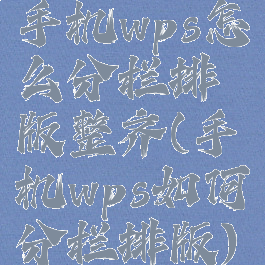 手机wps怎
么分栏排
版整齐(手
机wps如何
分栏排版)